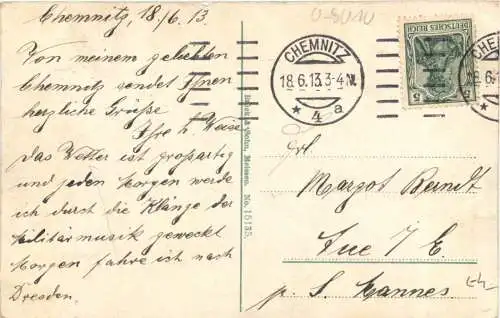 Chemnitz, 18./6. 13.
Von meinem geliebten
Chemnitz sendet Ihnen
herzliche Grüße
Ihre h. Weise
Das Wetter ist großartig
und jeden Morgen werde
ich durch die Klänge der
Militärmusik geweckt
Morgen fahre ich nach
Dresden.
Brück & Sohn, Meissen. No. 15135.
CHEMNITZ
18.6.13.3-4N.
* 4 a
DEUTSCHES REICH
5 5
CHE
18.6.
*
Frl.
Margot Berndt
Aue i/ E.
p. S. Hannes